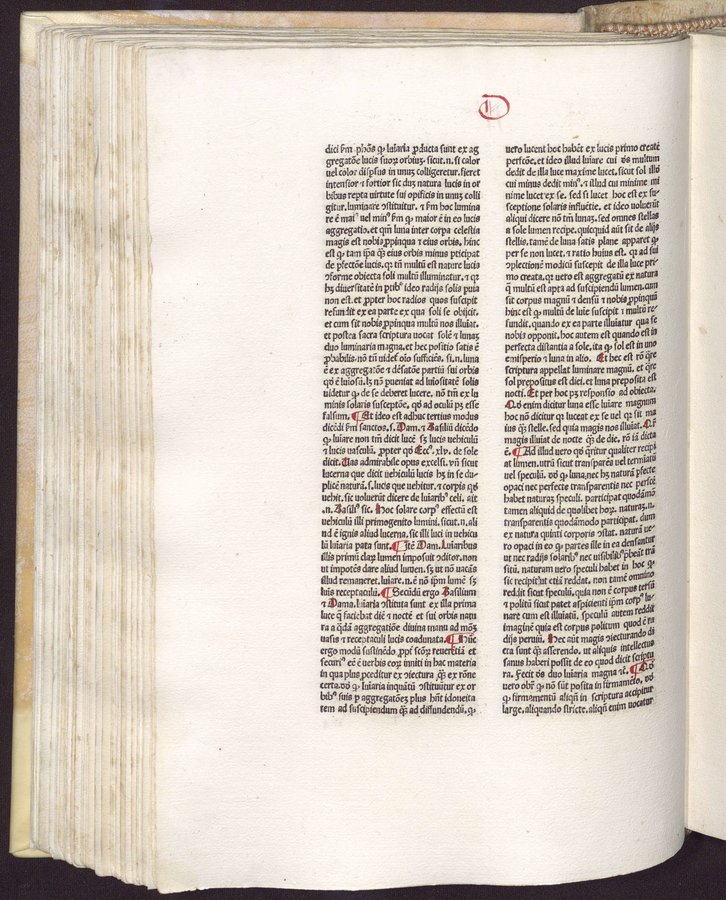 dici ẜm phōs ꝙ luīaria ꝓducta sunt ex ag
gregatōe lucis suoꝝ orbiuꝫ. sicut .n. si calor
uel color dispsus in unuꝫ colligeretur. fieret
intensior ⁊ fortior sic duꝫ natura lucis in or
bibus repta uirtute sui opificis in unuꝫ colli
gitur. luminare ꝯstituitur. ⁊ ẜm hoc lumina
re ē maiꝰ uel minꝰ ẜm ꝙ maior ē in eo lucis
aggregatio. et qm̄ luna inter corpa celestia
magis est nobis ꝓpinqua ⁊ eius orbis, hinc
est ꝙ tam ip̄a qꝫ eius orbis minus pticipat
de pfectōe lucis. qꝛ tn̄ multū est nature lucis
ꝯforme obiecta soli multū illuminatur. ⁊ qꝛ
hꝫ diuersitatē in ptibꝰ ideo radijs solis puia
non est. et ꝓpter hoc radios quos suscipit
refundit ex ea parte ex qua soli se obijcit.
et cum sit nobis ꝓpinqua multū nos illuīat.
et postea sacra scriptura uocat solē ⁊ lunaꝫ
duo luminaria magna. et hec positio satis ē
ꝓbabilis. nō tn̄ uidet̄ oīo sufficiēs. si .n. luna
ē ex aggregatōe ⁊ dēsatōe partiū sui orbis
qđ ē luīosū. lꝫ nō pueniat ad luīositatē solis
uidetur ꝙ de se deberet lucere. nō tm̄ ex lu
minis solaris susceptōe. qđ ad oculū pꝫ esse
falsum. ¶ Et ideo est adhuc tertius modus
dicēdi ẜm sanctos. s. Dam. ⁊ Basiliū dicēdo
ꝙ luīare non tm̄ dicit lucē sꝫ lucis uehiculū
⁊ lucis vasculū. ꝓpter qđ Eccꝰ. xlv. de sole
dicit. Uas admirabile opus excelsi. vn̄ sicut
lucerna que dicit vehiculū lucis hꝫ in se du-
plicē naturā. s. lucis que vehitur. ⁊ corpis qđ
vehit. sic voluerūt dicere de luīaribꝰ celi. ait
.n. Basiliꝰ sic. Hoc solare corpꝰ effectū est
vehiculū illi primogenito lumini. sicut .n. ali
ud ē ignis aliud lucerna, sic illi luci in uehicu
lū luīaria pata sunt. ¶ Itē Dam. Luīaribus
illis primū claꝝ lumen imposuit ꝯditor. non
ut impotēs dare aliud lumen. sꝫ ut nō uacās
illud remaneret. luīare .n. ē nō ip̄m lumē sꝫ
luīs receptaculū. ¶ Secūdū ergo Basilium
⁊ Dama. luīaria ꝯstituta sunt ex illa prima
luce ꝙ faciebat diē ⁊ noctē et sui orbis natu
ra a qđā aggregatiōe diuina manu ad modꝫ
vasis ⁊ receptaculi lucis coadunata. ¶ Hūc
ergo modū sustinēdo ꝓpt̄ scōꝝ reuerētiā et
securiꝰ eē ē uerbis eoꝝ inniti in hac materia
in qua plus pceditur ex ꝯiectura qꝫ ex rōne
certa. vđ ꝙ luīaria inquātū ꝯstituūtur ex or
bibꝰ suis p aggregatōeꝫ plus hn̄t idoneita
tem ad suscipiendum qꝫ ad diffundendū. ꝙ
1
uero lucent hoc habēt ex lucis primo create
perfcōe. et ideo illud luīare cui dꝰs multum
dedit de illa luce maxime lucet. sicut sol illđ
cui minus dedit minꝰ. ⁊ illud cui minime mi
nime lucet ex se. sed si lucet hoc est ex su-
sceptione solaris influētie. et ideo voluerūt
aliqui dicere nō tm̄ lunaꝫ. sed omnes stellas
a sole lumen recipe. quicquid aūt sit de alijs
stellis. tamē de luna satis plane apparet ꝙ
per se non lucet. ⁊ ratio huius est. qꝛ ad sui
ꝯplectionē modicū suscepit de illa luce pri-
mo creata. qꝛ uero est aggregatū ex natura
ꝙ multū est apta ad suscipiendū lumen. cum
sit corpus magnū ⁊ densū ⁊ nobis ꝓpinquū
hinc est ꝙ multū de luīe suscipit ⁊ multū re-
fundit. quando ex ea parte illuīatur qua se
nobis opponit. hoc autem est quando est in
perfecta distantia a sole. ita ꝙ sol est in uno
emisperio ⁊ luna in alio. Et hec est rō qꝛe
scriptura appellat luminare magnū. et qꝛe
sol prepositus est diei. et luna preposita est
nocti. Et per hoc pꝫ responsio ad obiecta.
Qđ enim dicitur luna esse luīare magnum
hoc nō dicitur qꝛ luceat ex se uel qꝛ sit ma
ius qꝫ stelle. sed quia magis nos illuīat. Qꝛ
magis illuīat de nocte qꝫ de die. rō iā dicta
ē. ¶ Ad illud uero qđ q̄ritur qualiter recipi
at lumen. utrū sicut transparēs uel termiatū
uel speculū. vđ ꝙ luna nec hꝫ naturā pfecte
opaci nec perfecte transparentis nec perfcē
habet naturaꝫ speculi. participat quodāmō
tamen aliquid de quolibet hoꝝ. naturaꝫ .n.
transparentis quodāmodo participat. dum
ex natura quinti corporis ꝯstat. naturā ue-
ro opaci in eo ꝙ partes ille in ea densantur
ut nec radijs solaribꝰ nec uisibilibꝰ p̄beāt trā
sitū. naturam uero speculi habet in hoc ꝙ
sic recipit ut etiā reddat. non tamē omnino
reddit sicut speculū. quia non ē corpus tersū
⁊ politū sicut patet aspicienti ip̄m corpꝰ lu-
nare cum est illuīatū. speculū autem reddit
imaginē quia est corpus politum quod ē ra
dijs peruiū. Hec aūt magis ꝯiecturando di
cta sunt qꝫ asserendo. ut aliquis intellectus
sanus haberi possit de eo quod dicit scriptu
ra. Fecit dꝰs duo luīaria magna ⁊c. ¶ Qđ
vero obr̄ ꝙ nō sūt posita in firmamēto. vđ
ꝙ firmamentū aliqn̄ in scriptura accipitur
large. aliquando stricte. aliqn̄ enim uocatur